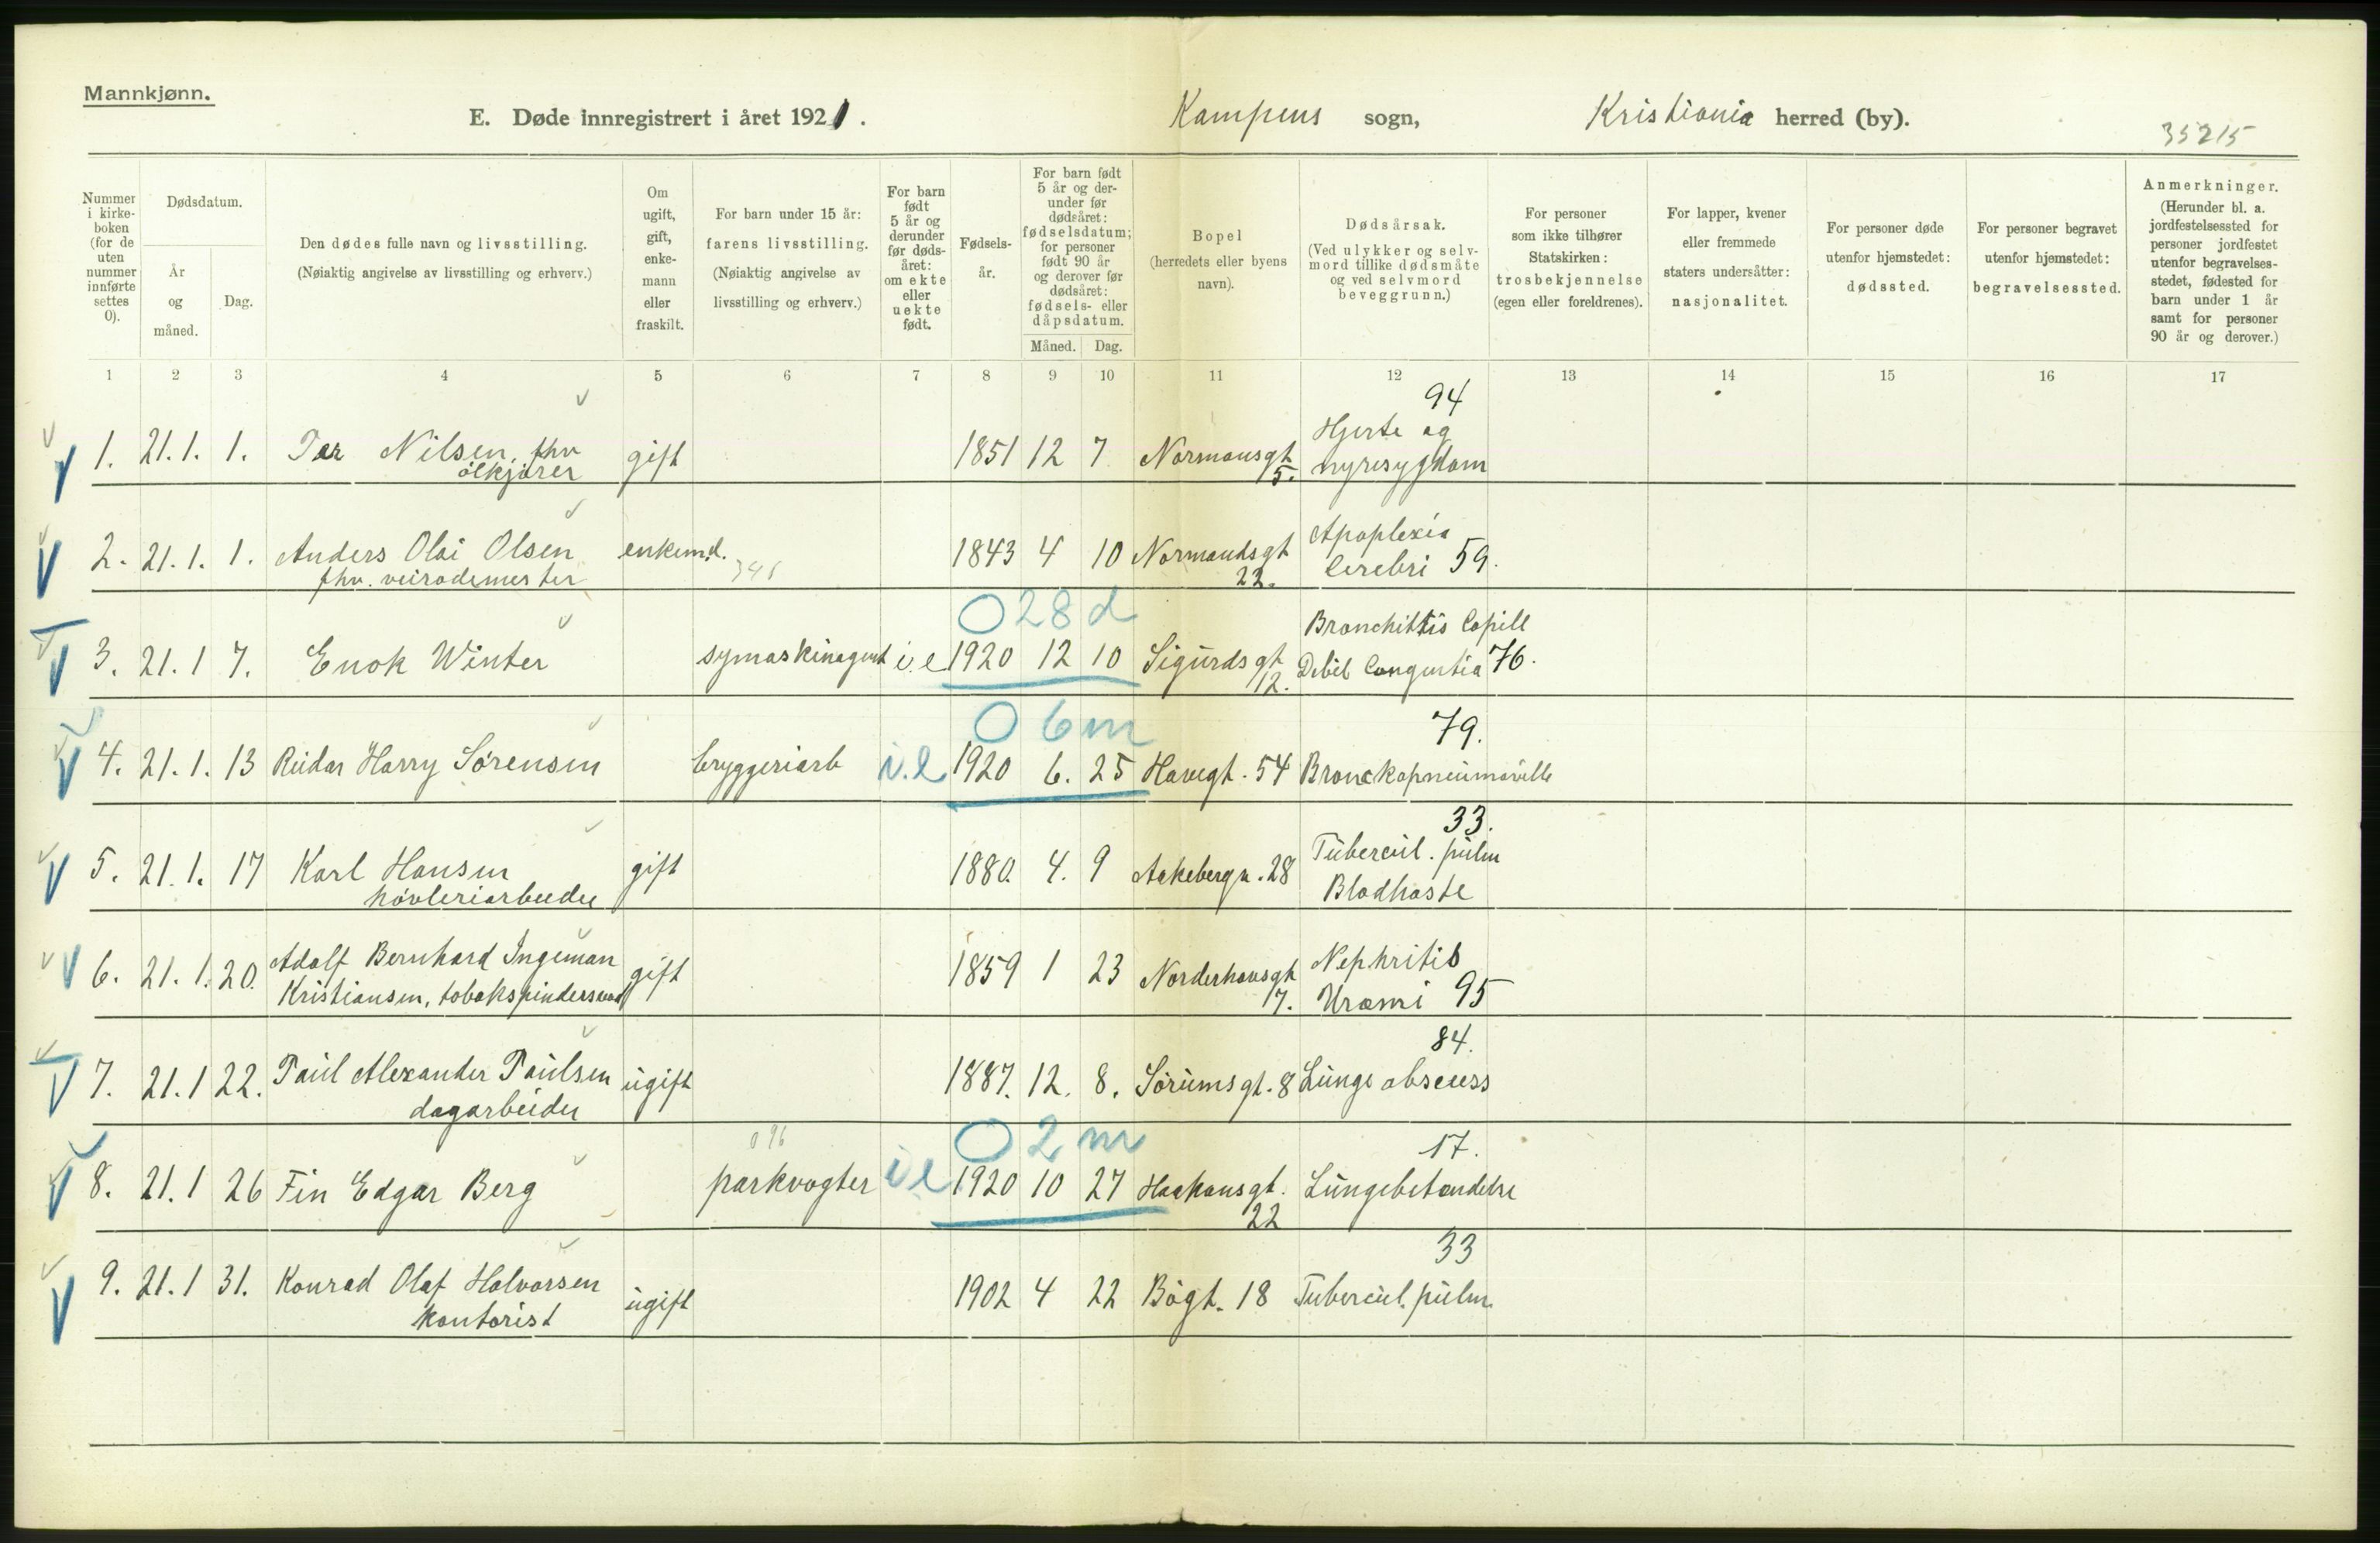 Mannkjønn.
E. Døde innregistrert i året 1921.
Kampens sogn,
Kristiania herred (by).
35215
Nummer i kirke-boken (for de uten nummer innførte settes 0).
Dødsdatum.
År og måned.
Dag.
Den dødes fulle navn og livsstilling.
(Nøiaktig angivelse av livsstilling og erhverv.)
Om ugift, gift, enke-mann eller fraskilt.
For barn under 15 år: farens livsstilling.
(Nøiaktig angivelse av livsstilling og erhverv.)
For barn født 5 år og derunder før døds-året: om ekte eller uekte født.
Fødsels-år.
For barn født 5 år og der-under før dødsåret: fødselsdatum; for personer født 90 år og derover før dødsåret: fødsels- eller dåpsdatum.
Måned. Dag.
Bopel
(herredets eller byens navn).
Dødsårsak.
(Ved ulykker og selv-mord tillike dødsmåte og ved selvmord beveggrunn.)
For personer som ikke tilhører Statskirken: trosbekjennelse (egen eller foreldrenes).
For lapper, kvener eller fremmede staters undersåtter: nasjonalitet.
For personer døde utenfor hjemstedet: dødssted.
For personer begravet utenfor hjemstedet: begravelsessted.
Anmerkninger.
(Herunder bl. a. jordfestelsessted for personer jordfestet utenfor begravelses-stedet, fødested for barn under 1 år samt for personer 90 år og derover.)
1 2 3 4 5 6 7 8 9 10 11 12 13 14 15 16 17
94
1. 21.1. 1. Per Nilsen, fhv ølkjører gift 1851 12 7 Normansgt 15. Hjerte og nyresygdom
2. 21.1. 1. Anders Olai Olsen fhv. veirodemester enkemd. 1843 4 10 Normandsgt 22. Apoplexia Cerebri 59.
346
O 28 d
3. 21.1 7. Enok Winter symaskinagent i.e 1920 12 10 Sigurdsgt 12. Bronchittis Capill Debil Congestia 76.
O 6 m
79.
4. 21.1. 13 Reidar Harry Sørensen bryggeriarb i.e 1920 6. 25 Havegt. 54
33.
5. 21.1. 17 Karl Hansen høvleriarbeider gift 1880. 4. 9 Aakebergv. 28 Tubercul. pulm Blodhoste
6. 21.1. 20. Adolf Bernhard Ingeman Kristiansen, gift 1859 1 23 Norderhovsgt 17. Nephritis Uræmi 95
84.
7. 21.1 22. Paul Alexander Paulsen dagarbeider ugift 1887. 12. 8. Sørumsgt. 8 Lunge abscess
096
O 2 m
17.
8. 21.1 26 Fin Edgar Berg parkvogter i.e 1920 10 27 Haakonsgt. 22 Lungebetændelse
33
9. 21.1 31. Konrad Olaf Halvorsen kontorist ugift 1902 4 22 Bøgt. 18 Tubercul. pulm.